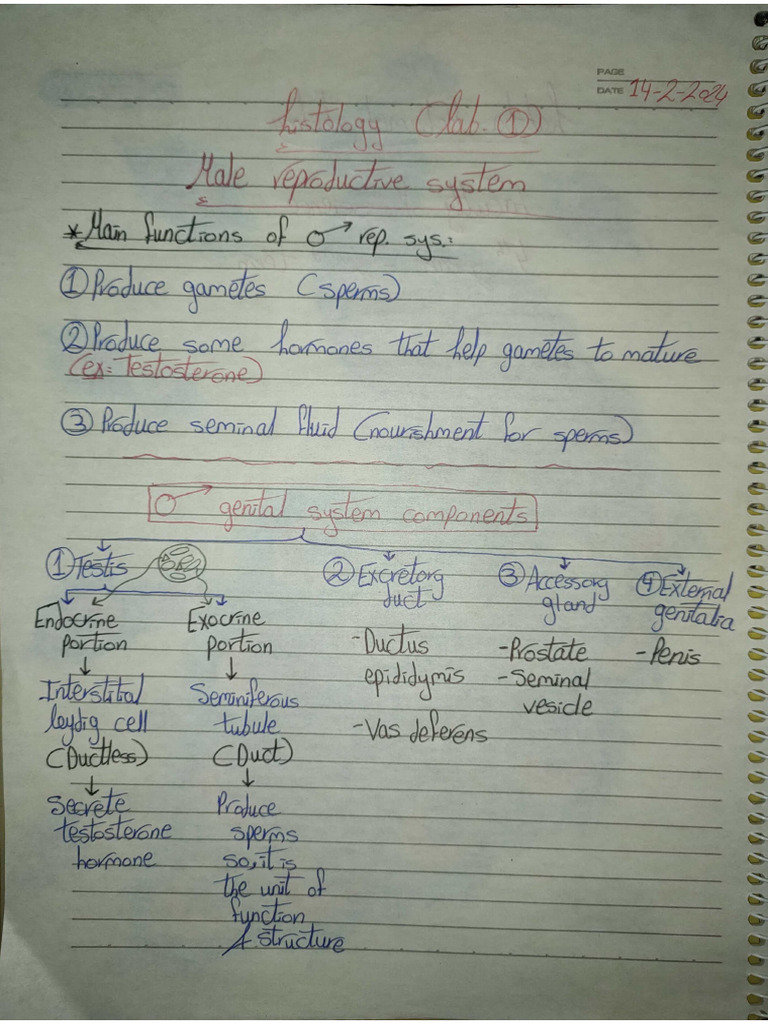 PAGE
DATE 14-2-2024
histology (lab. ①)
Male reproductive system
*Main functions of ♂ rep. sys.:
① Produce gametes (sperms)
② Produce some hormones that help gametes to mature
(ex: Testosterone)
③ Produce seminal fluid (nourishment for sperms)
♂ genital system components
① Testis
Endocrine
portion
Interstitial
leydig cell
(Ductless)
Secrete
testosterone
hormone
Exocrine
portion
Seminiferous
tubule
(Duct)
Produce
sperms
so, it is
the unit of
function
& structure
② Excretory
duct
-Ductus
epididymis
-Vas deferens
③ Accessory
gland
-Prostate
-Seminal
vesicle
④ External
genitalia
-Penis